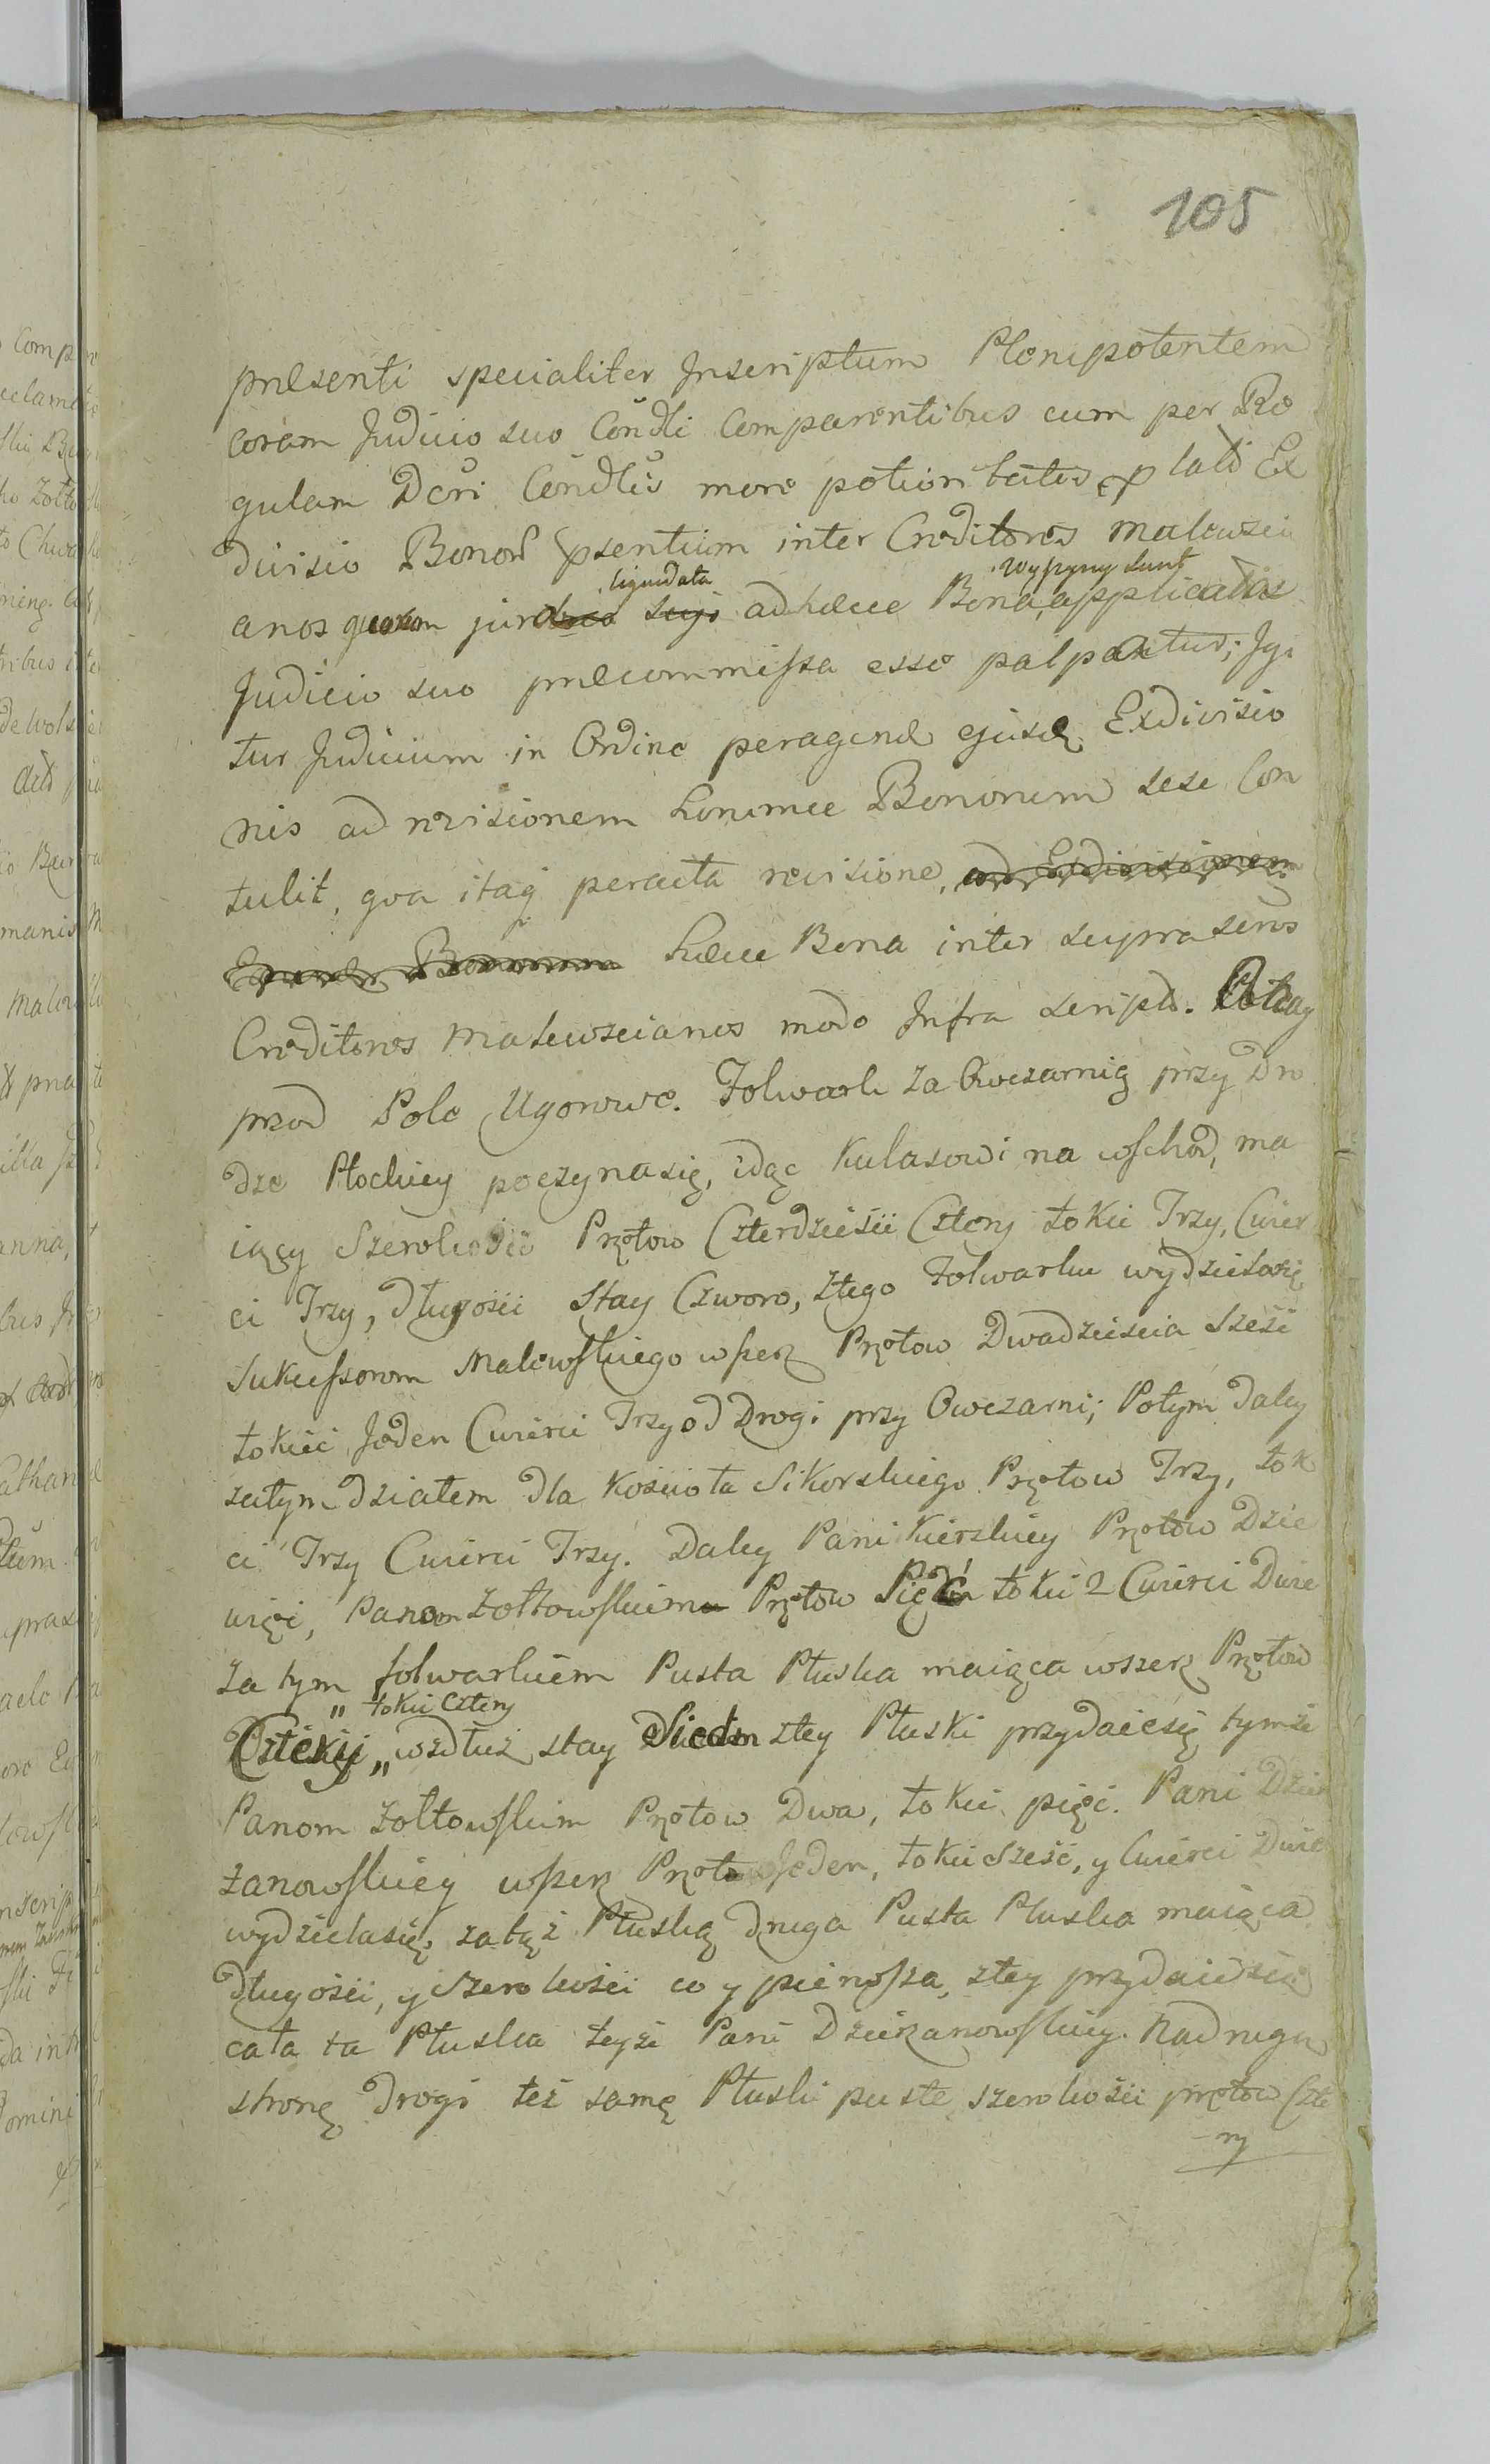 105
pnlsenti specialiter Inscriptum Plenipotentem
coram Judicio suo Condli Comparentibus cum per Re
gulam Dcri Condlis more potioritatis lati Ex
divisio Bonor psentium inter Creditores Malewsci
liquidata
anos quorum jura suys adhæce Bona applicata
Judicio suo pnlcommissa esse palpatur; Igi
tur Judicium in Ordine peragend ejusd Exdivisio
nis ad revisionem horumce Bonorum sese Con
tulit, qva itaq peracta revisione, ad Exdivisionem
Bonorum hæce Bona inter supra scros
Creditores Malewscianos modo Infra script.
przod Pole Ugorowe. Folwark za Owczarnią przy Dro
dze Płockiey poczynasię, idąc Kulasowi na wschod, ma
iący Szerokości Prętow Czterdzieści Cztery łokci Trzy, Cwier
ci Trzy, długości Stay Czworo, ztego Folwarku wydzielasię
Sukcessorom Malewskiego wszerz Prętow Dwadzieścia Sześć
łokieć Jeden Cwierci Trzy od Drogi przy Owczarni; Potym daley
zatym działem dla Kościoła Sikorskiego Prętow Trzy, łok
ci Trzy Cwierci Trzy. Daley Pani Kierskiey Prętow Dzie
więć, Panom Zołtowskim Prętow Pięć łokci 2 Cwierci Dwie
za tym folwarkiem Pusta Płuska maiąca wszerz Prętow
" łokci Cztery
Cztery " wzdłuż stay Siedm ztey Płuski przydaiesię tymże
Panom Zołtowskim Prętow Dwa, łokci pięć. Pani Dzier
zanowskiey wszerz Pręt Jeden, łokci Sześć, y Cwierci Dwie
wydzielasię, zatąż Płuską druga Pusta Płuska maiąca
Długości, y Szerokości co y pierwsza, ztey przydaiesię
cała ta Płuska teyże Pani Dzierzanowskiey. Nadrugą
stronę Drogi też samę Płuski puste szerokości prętow Czte
ry